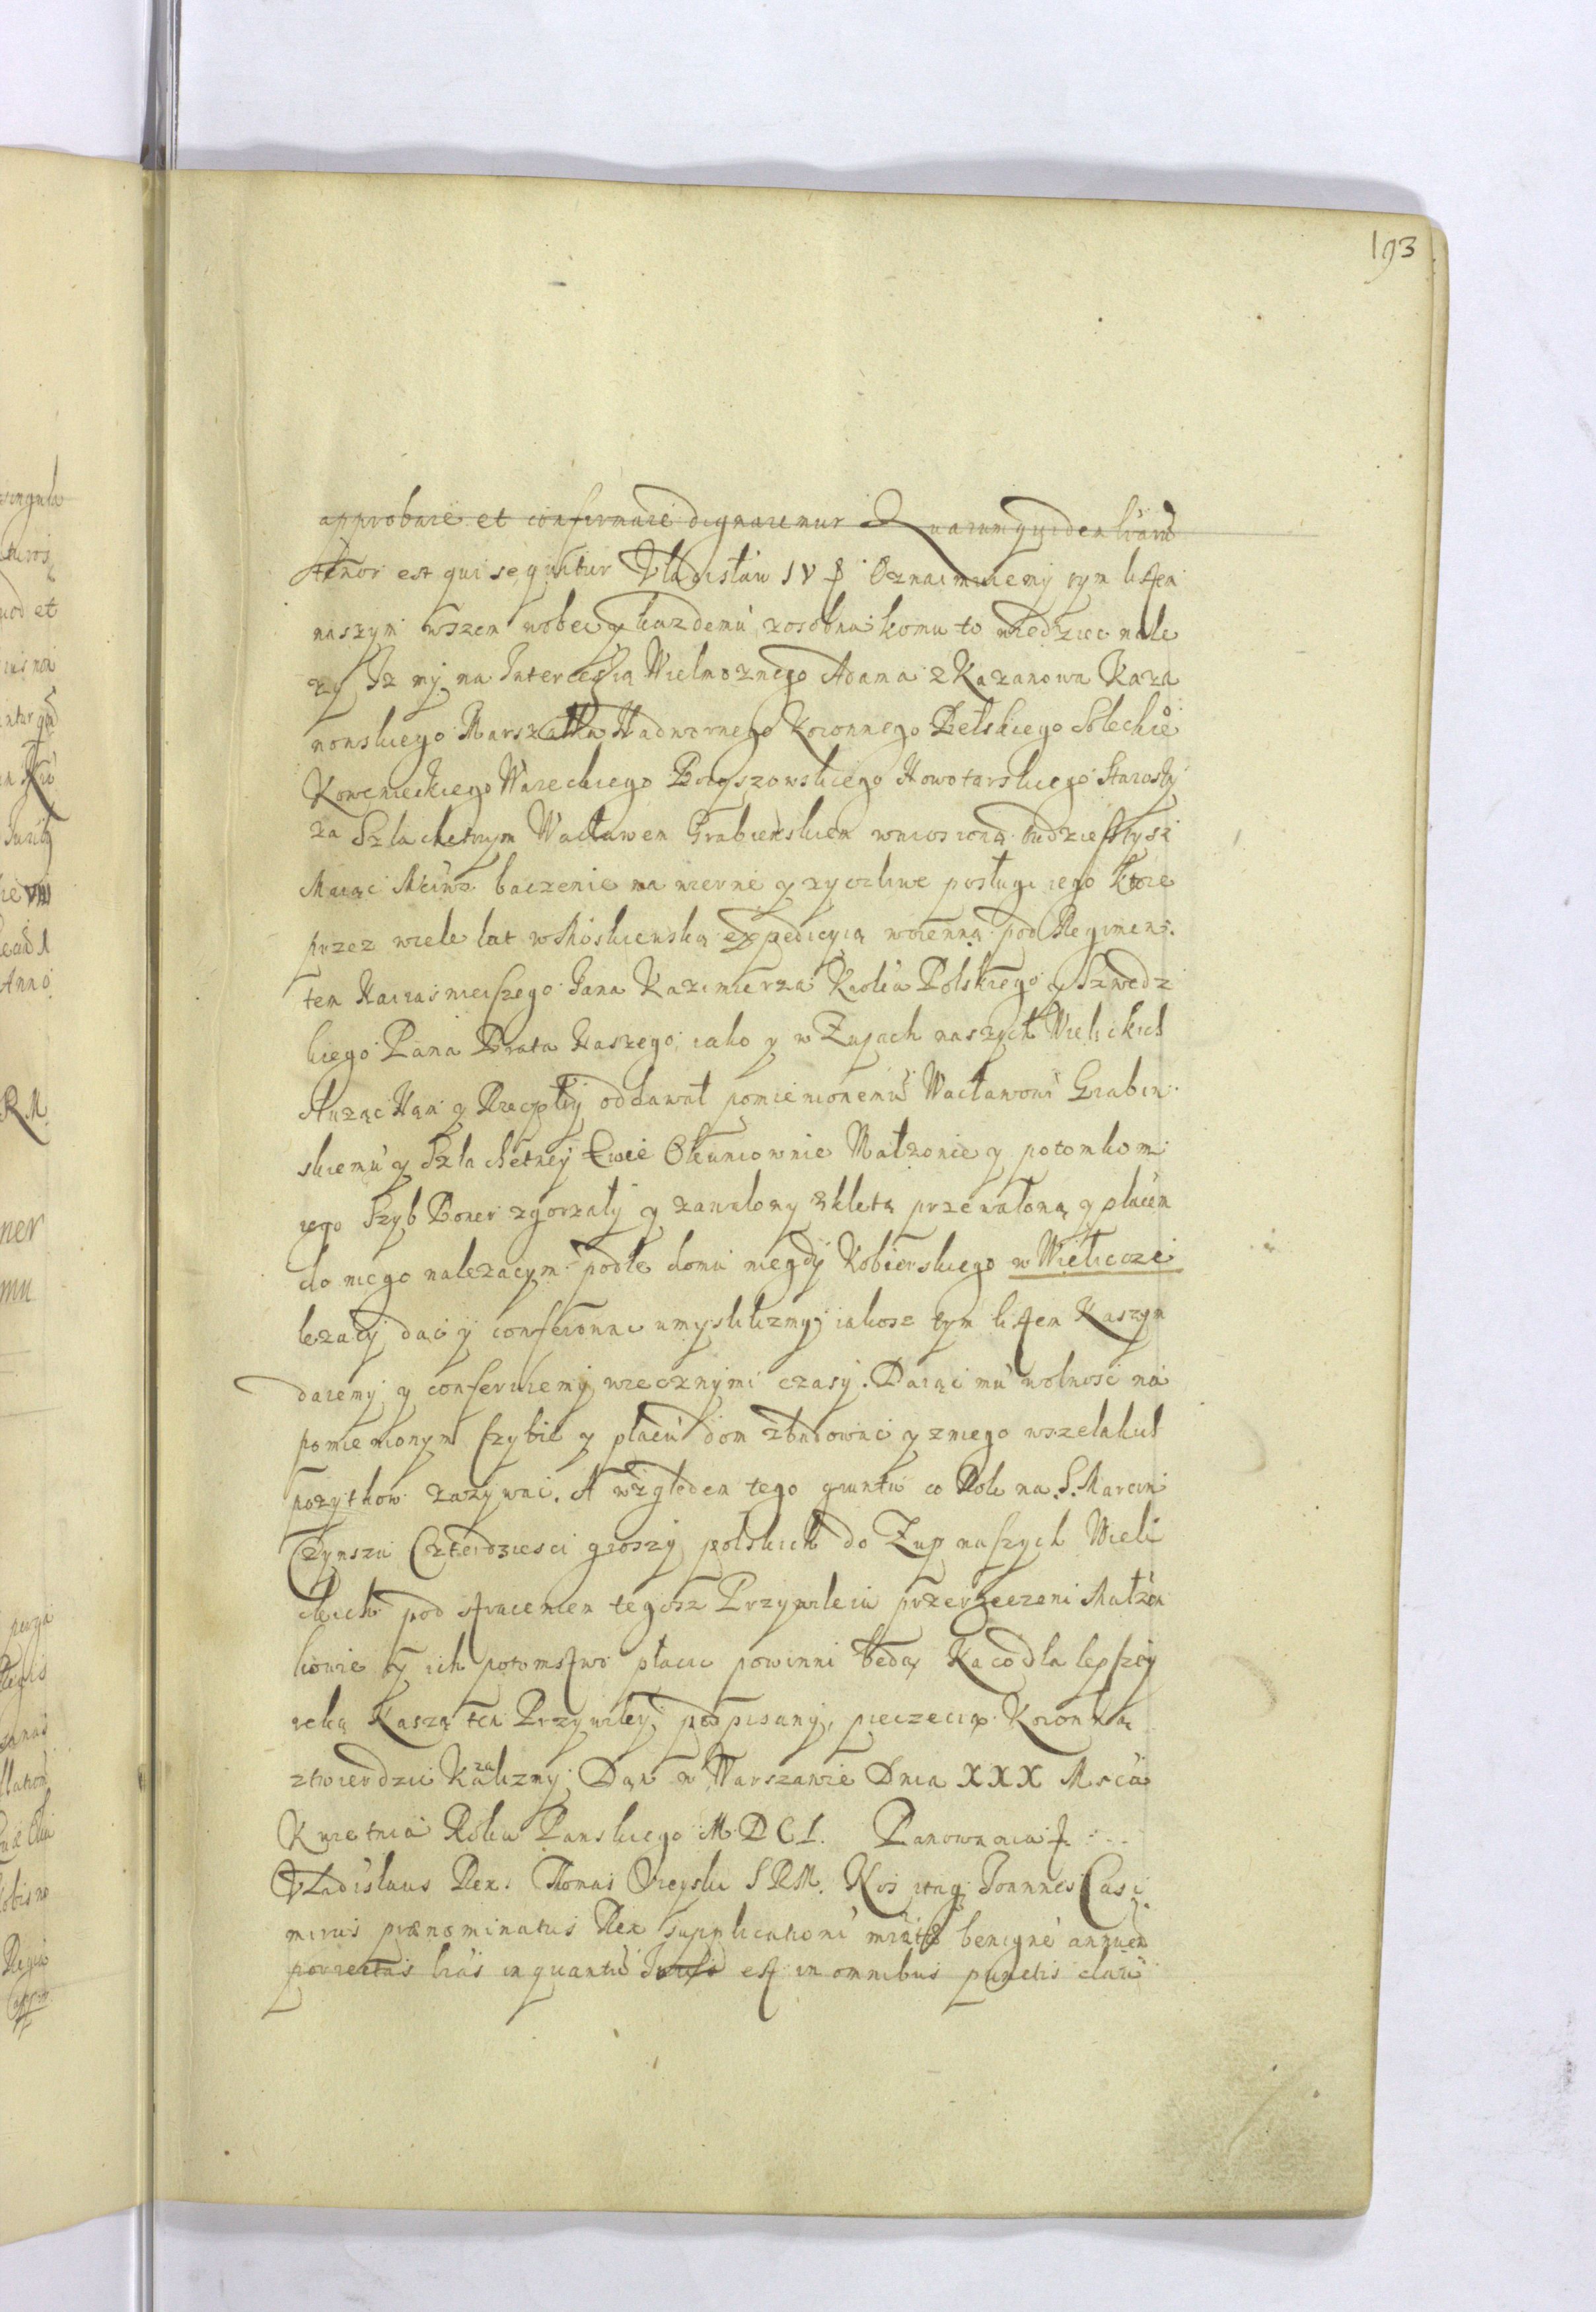 193
approbare et confirmare dignaremur Quarum quidem lrarũ
tenor est qui sequitur Vladisław IV & Oznaimuiemy tym listem
naszym wszem wobec y kazdemu zosobna komu to wiedziec nale
zy Iz my na Intercessią Wielmoznego Adama z Kazanowa Kaza
nowskiego Marszałka Nadwornego Koronnego Bielskiego Soleckie°
Kowenickiego Wareckiego Borysowskiego Nowotarskiego Starosty
za Szlachetnym Wacławem Grabieńskiem wniosioną tudziesz tysz
Maiąc baczenie na wierne y zyczliwe posługi iego ktore
przez wiele lat w Moskiewską expedicyią woienną pod Regimen
tem Naiasnieiszego Jana Kazimierza Krola Polskiego y Szwedz
kiego Pana Brata Naszego iako y w Zupach naszych Wielickich
słuząc Nam y Rzeczptey oddawał pomienionemu Wacławowi Grabin
skiemu y Szlachetney Ewie Okuniownie Małzonce y potomkom
iego Szyb Boner zgorzały y zawalony z kletą przewaloną y placem
do niego nalezacym podle domu niegdy Kobierskiego w Wieliczce
lezacy dac y conferowac umyslilizmy iakosz tym listem Naszym
daiemy y conferuiemy wiecznymi czasy. Daiąc mu wolnosc na
pomienionym szybie y placu dom zbudowac y z niego wszelakich
pozytkow zazywac. A względem tego gruntu co Rok na S. Marcin
Czynszu Czterdziesci groszy polskich do Zup naszych Wieli
ckich pod straceniem tegosz Przywileiu przerzeczeni Małzon
kowie y ich potomstwo płacic powinni będą Na co dla lepszey
ręką Naszą ten Przywiley podpisany, pieczecią Koronną
ztwierdzic Kazalizmy Dan w Warszawie Dnia XXX Msca
Kwietnia Roku Panskiego MDCL. Panowania &
Vladislaus Rex. Thomas SRM. Nos itaq Joannes Casi
mirus praenominatus Rex supplicationi benigne annuen
porrectas lras in quantũ Juris est in omnibus punctis clau